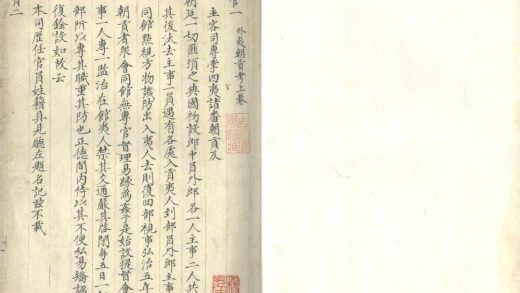 官一
外夷朝貢考上卷
主客司專掌四夷諸番朝貢及
朝廷一切匪頒之典國初設郎中員外郎各一人主事二人共
其後汰去主事一員遇有各處入貢夷人到部員外郎主事
同館點視方物譏防出入夷人去則復回部視事弘治五年
朝貢者眾會同館無專官督理易緣為姦于是始設提督會
事一人專一監治在館夷人禁其交通嚴其啓閉每五日一
部所以專其職重其防也正德間內侍以其不便私易矯詔
復銓設如故云
本司歷任官員姓籍具見廳左題名記茲不載
員二